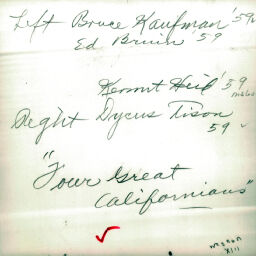 Left Bruce Kaufman '59
Ed Bruin '59
Kermit Heil '59
Right Dycus Tison
59
"Four Great
Californians"
XIII